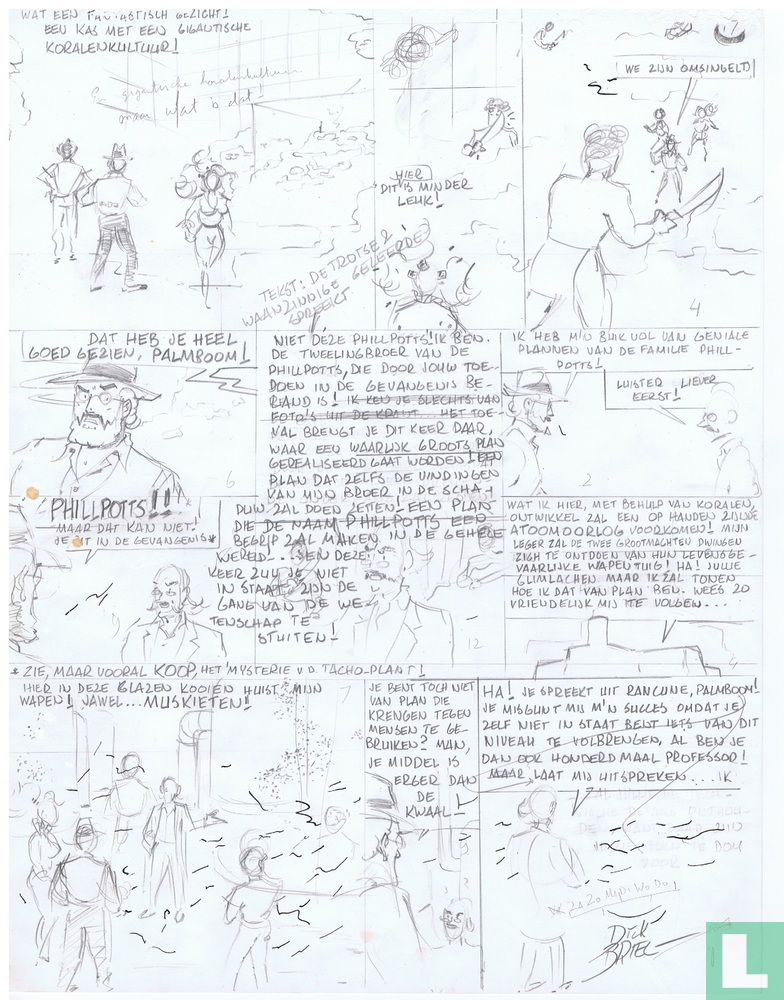 WAT EEN FANTASTISCH GEZICHT!
EEN KAS MET EEN GIGANTISCHE
KORALENKULTUUR!
gigantische koralenkultuur
maar wat is dat!
7
WE ZIJN OMSINGELD
HIER
DIT IS MINDER
LEUK!
TEKST: DE TROTSE 2
WAANZINNIGE GELEERDE
SPREEKT
4
DAT HEB JE HEEL
GOED GEZIEN, PALMBOOM!
6
NIET DEZE PHILLPOTTS! IK BEN
DE TWEELINGBROER VAN DE
PHILLPOTTS, DIE DOOR JOUW TOE-
DOEN IN DE GEVANGENIS BE-
LAND IS! IK KEN JE SLECHTS VAN
FOTO'S UIT DE KRANT... HET TOE-
VAL BRENGT JE DIT KEER DAAR,
WAAR EEN WAARLIJK GROOTS PLAN
GEREALISEERD GAAT WORDEN! EEN
PLAN DAT ZELFS DE VINDINGEN
VAN MIJN BROER IN DE SCHA-
DUW ZAL DOEN ZETTEN! EEN PLAN
DIE DE NAAM PHILLPOTTS EEN
BEGRIP ZAL MAKEN IN DE GEHELE
WERELD!...EN DEZE
KEER ZUL JE NIET
IN STAAT ZIJN DE
GANG VAN DE WE-
TENSCHAP TE
STUITEN!
IK HEB M'N BUIK VOL VAN GENIALE
PLANNEN VAN DE FAMILIE PHILL-
POTTS!
LUISTER LIEVER
EERST!
2
PHILLPOTTS!!
MAAR DAT KAN NIET!
JE ZIT IN DE GEVANGENIS*
12
WAT IK HIER, MET BEHULP VAN KORALEN,
ONTWIKKEL ZAL EEN OP HANDEN ZIJNDE
ATOOMOORLOG VOORKOMEN! MIJN
LEGER ZAL DE TWEE GROOTMACHTEN DWINGEN
ZICH TE ONTDOEN VAN HUN LEVENSGE-
VAARLIJKE WAPENTUIG! HA! JULLIE
GLIMLACHEN MAAR IK ZAL TONEN
HOE IK DAT VAN PLAN BEN. WEES ZO
VRIENDELIJK MIJ TE VOLGEN...
4
* ZIE, MAAR VOORAL KOOP, HET 'MYSTERIE V.D. TACHO-PLANT!
HIER IN DEZE GLAZEN KOOIEN HUIST MIJN
WAPEN! JAWEL...MUSKIETEN!!
JE BENT TOCH NIET
VAN PLAN DIE
KRENGEN TEGEN
MENSEN TE GE-
BRUIKEN? MAN,
JE MIDDEL IS
ERGER DAN
DE
KWAAL!
HA! JE SPREEKT UIT RANCUNE, PALMBOOM!
JE MISGUNT MIJ M'N SUCCES OMDAT JE
ZELF NIET IN STAAT BENT IETS VAN DIT
NIVEAU TE VOLBRENGEN, AL BEN JE
DAN OOK HONDERD MAAL PROFESSOR!
MAAR LAAT MIJ UITSPREKEN....IK
DICK
BRIEL
L